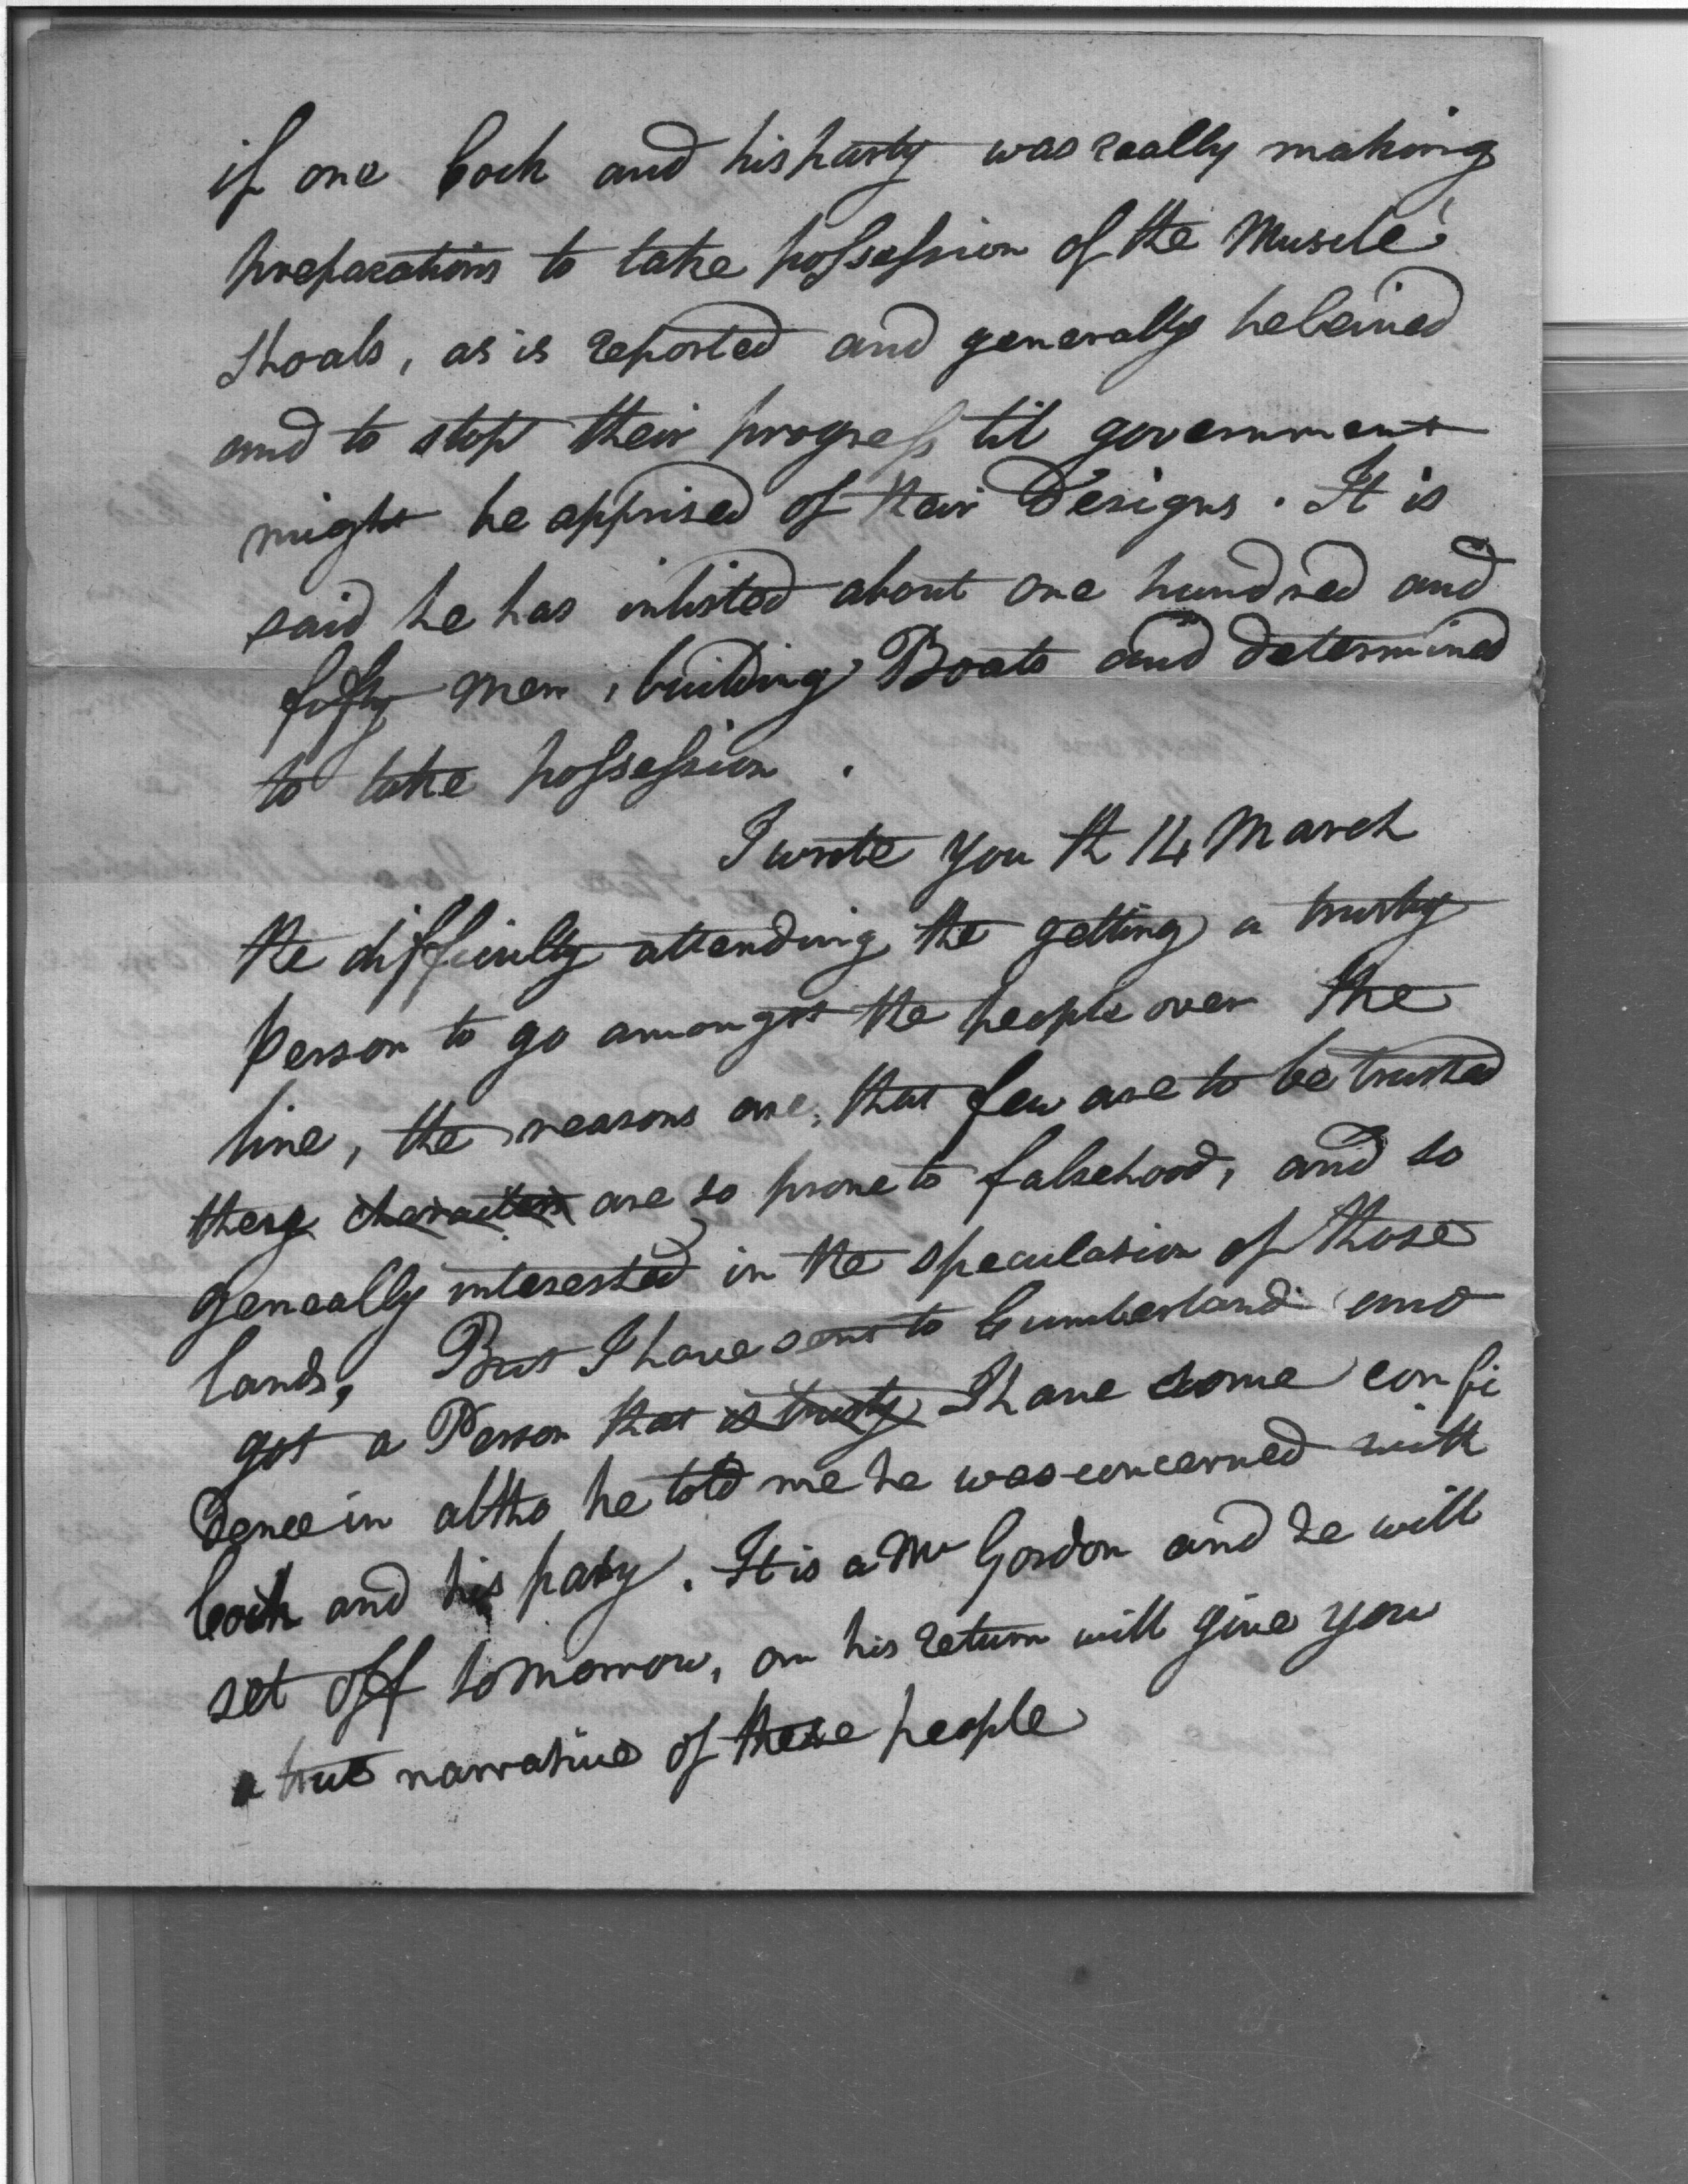 if one Cock and his party was really making
preparations to take possession of the Muscle
Shoals, as is reported and generally beleived
and to stop their progress til government
might be apprised of their Designs. It is
said he has inlisted about one hundred and
fifty men, building Boats and determined
to take possession.
I wrote you th 14 March
the difficulty attending the getting a trusty
Person to go amongst the people over the
line, the reasons are, that few are to be trusted
these characters are so prone to falsehood, and so
geneally interested in the speculation of those
lands, But I have sent to Cumberland and
got a Person that is trusty I have some confi
dence in altho he told me he was concerned with
Cock and his paty. It is a Mr Gordon and he will
set off tomorrow, on his return will give you
a true narrative of these people